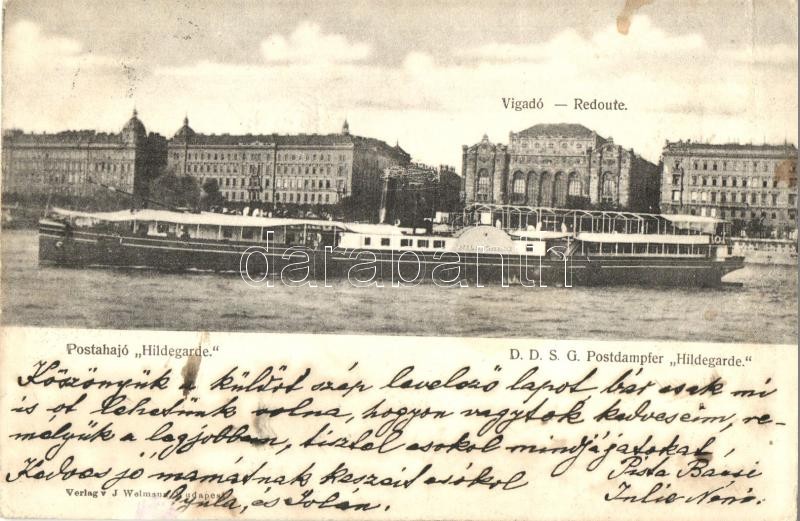 Vigadó — Redoute.
darabanth
Postahajó „Hildegarde."
D. D. S. G. Postdampfer „Hildegarde."
Köszönjük a küldöt szép levelező lapot bár csak mi
is ot lehetünk volna, hogyan vagytok kedveseim, re-
meljük a legjobban, tisztel csokol mindjájatokat,
Kedves jó mamátnak kezeit csókol
Pista Bácsi
Gyula, és Jolán.
Julis Néni.
Verlag v J Welmann Budapest